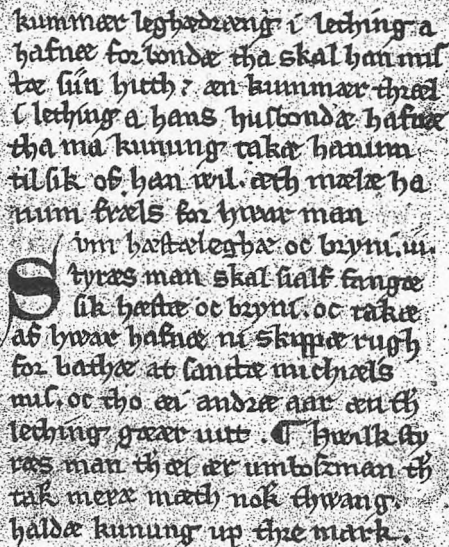 kummær leghædræng i lething a
hafnæ for bondæ tha skal han mis
tæ sin huth ⁊ æn kummær thræl
i lething a hans husbondæ hafnæ
tha ma kunung takæ hanum
til sik of han wil. æth mælæ ha
num fræls for hwar man
Vm hæstæleghæ oc bryni. iii.
Styræs man skal sialf fangæ
sik hæstæ oc bryni. oc takæ
af hwar hafnæ ni skippæ rugh
for bathæ at sanctæ michæls
mis. oc tho æi andræ aar æn th
lething gæær uut. ¶ Hwilk sty
ræs man th æi ær umbotzman th
tak meræ mæth nok thwang.
haldæ kunung up thre mark.